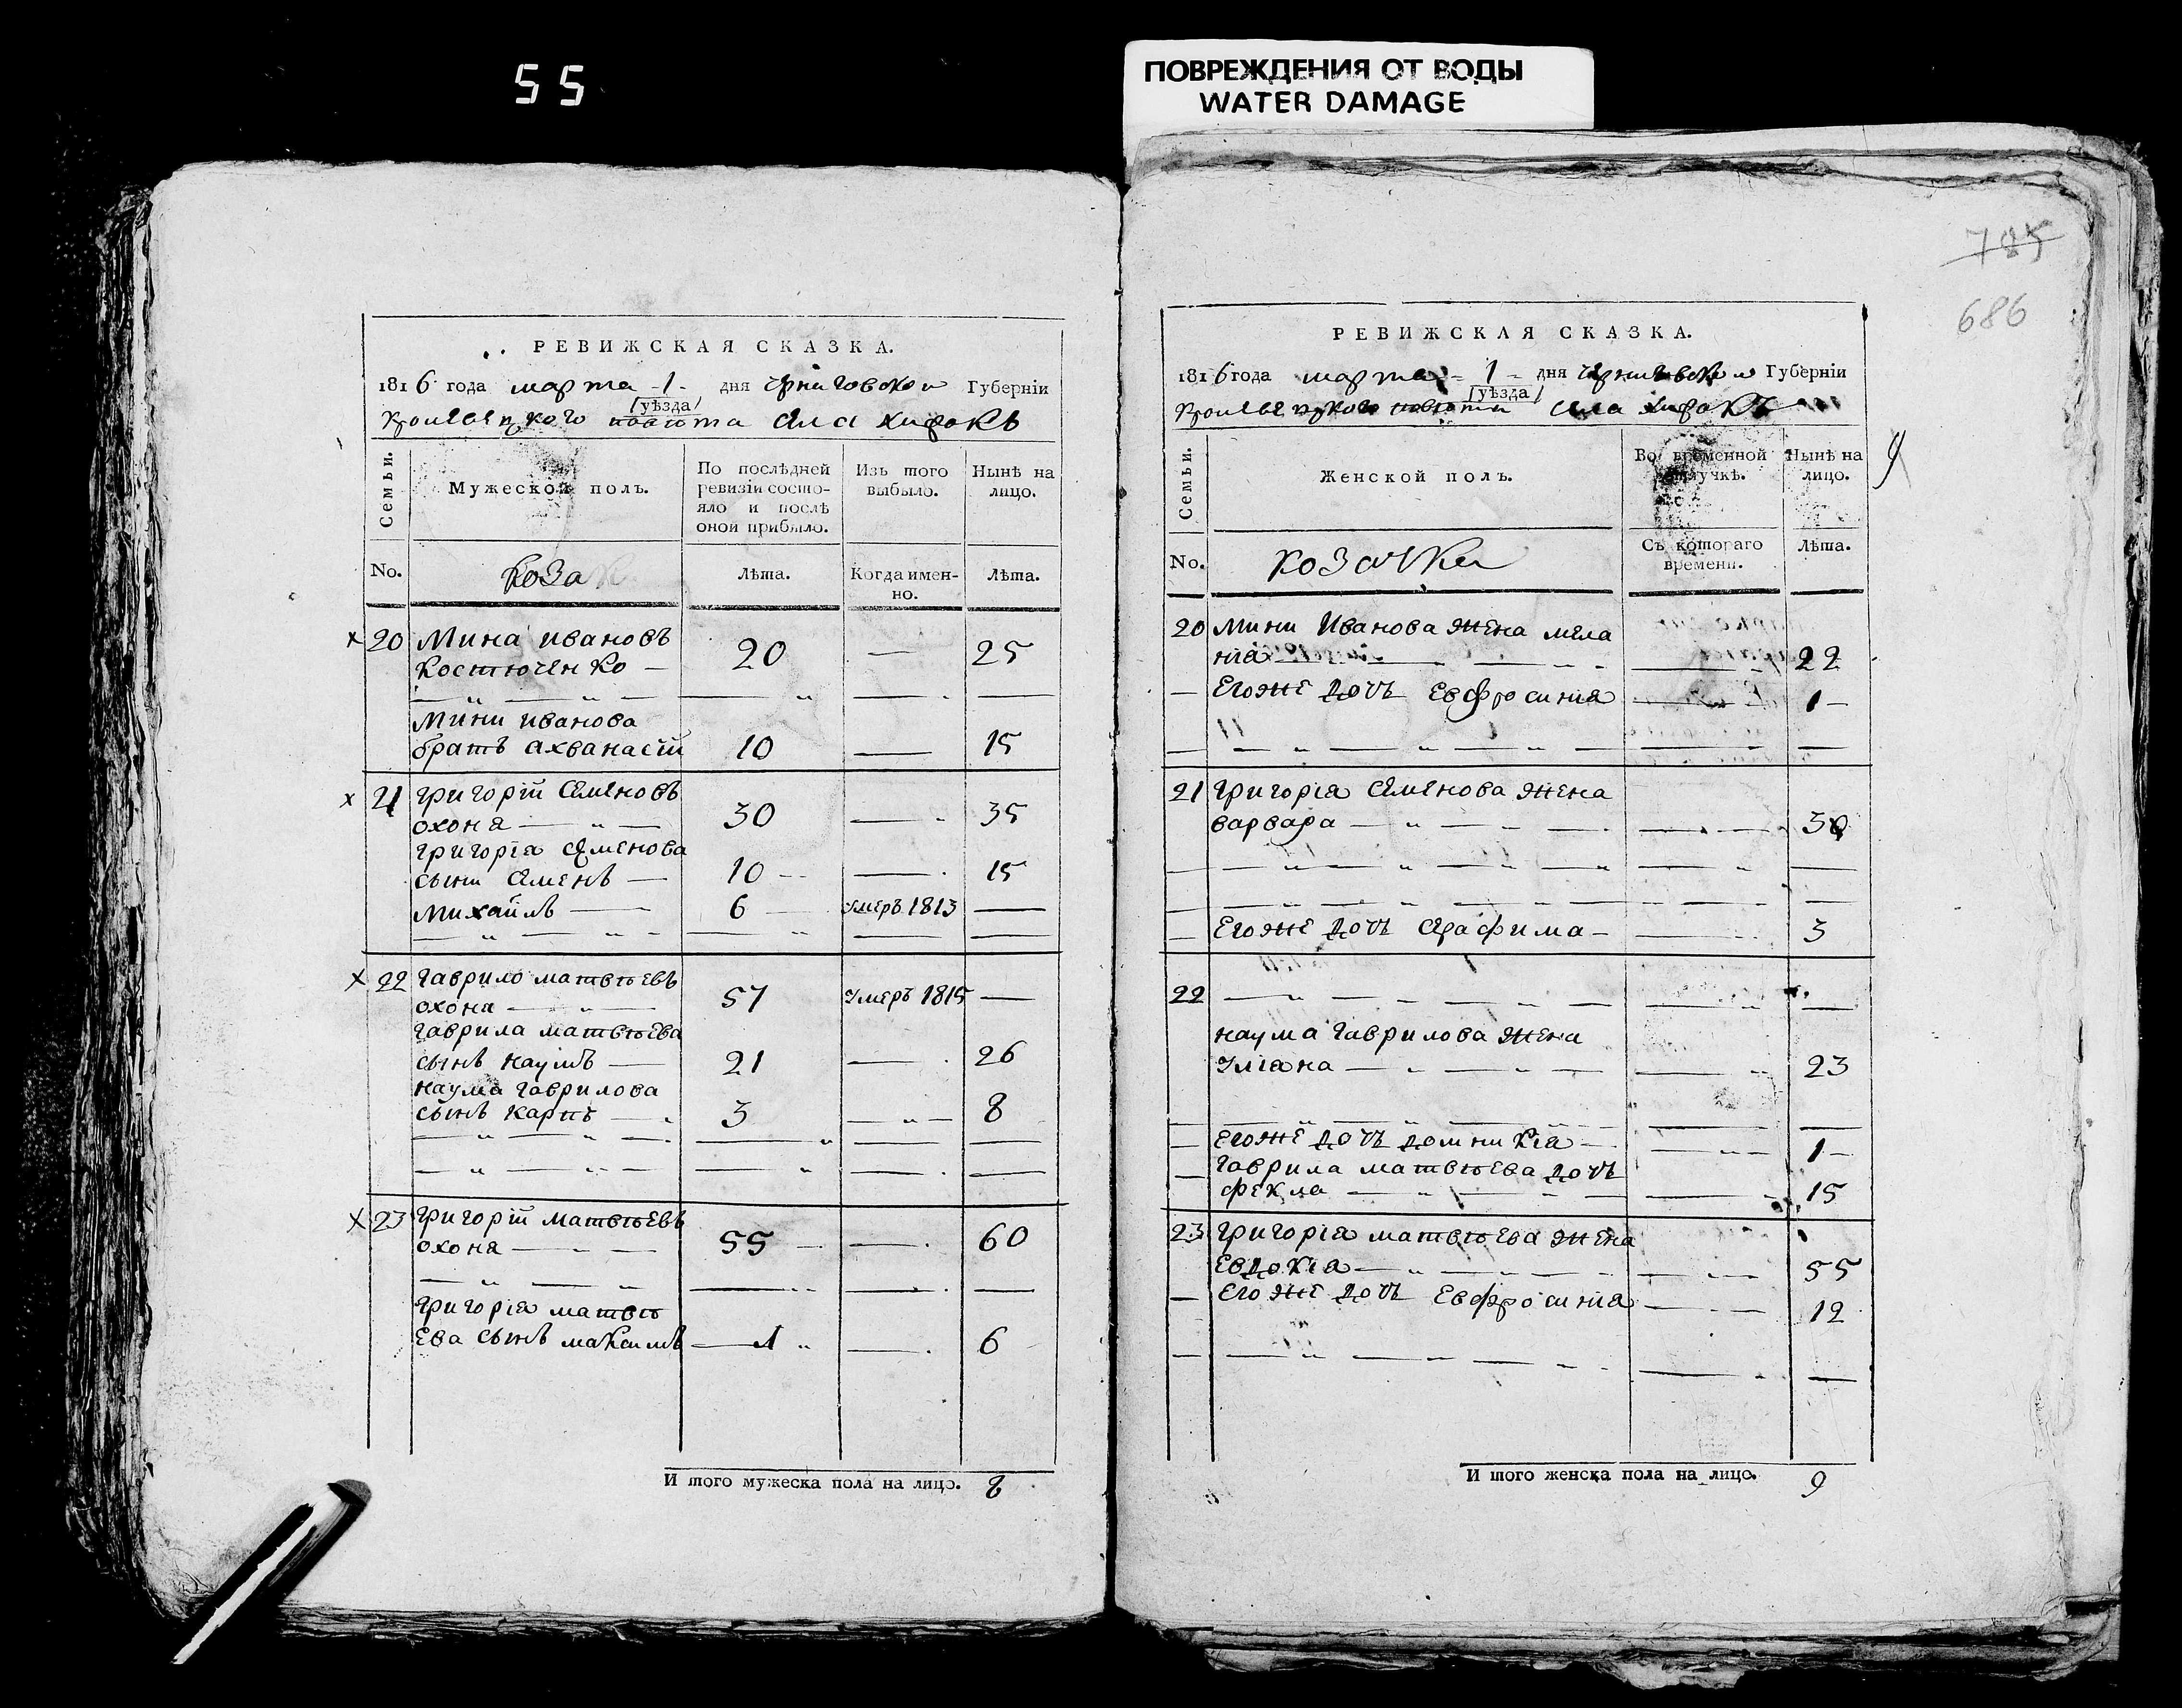 55
ПОВРЕЖДЕНИЯ ОТ ВОДЫ
WATER DAMAGE
РЕВИЖСКАЯ СКАЗКА.
1816 года марта -1- дня Чрниговской Губерніи
(уѣзда)
Кролевецкого повѣта села
Семьи.
Мужеской полъ.
По послѣдней ревизіи состо-
яло и послѣ оной прибыло.
Изъ того выбыло.
Нынѣ на лицо.
No.
Коза
Лѣта.
Когда имен-
но.
Лѣта.
х 20 Мина Ивановъ
Костюченко — 20 — 25
Мини Иванова
братъ Ахванасій 10 — 15
х 21 Григорій Семеновъ
охоня — 30 — 35
Григорія Семенова
сыни Семенъ — 10 — 15
Михайлъ — 6 умеръ 1813 —
х 22 Гаврило Матвѣевъ
охоня — 57 умеръ 1815 —
Гаврила Матвѣева
сынъ Наумъ — 21 — 26
Наума Гаврилова
сынъ Карпъ — 3 — 8
х 23 Григорій Матвѣевъ
охоня — 55 — 60
Григорія Матвѣ
ева сынъ Максимъ — 1 — 6
И того мужеска пола на лицо. 8
785
686
РЕВИЖСКАЯ СКАЗКА.
1816 года марта - 1 - дня Чрниговской Губерніи
(уѣзда)
Кролевецкого повѣта села
Семьи.
Женской полъ.
Во временной отлучкѣ.
Нынѣ на лицо.
No.
Козачки
Съ котораго
времени.
Лѣта.
20 Мини Иванова жена Мела
нія — 22
— Егоже дочъ Евфросинія — 1 —
21 Григорія Семенова жена
Варвара — 30
— Егоже дочъ Серафима — 3
22 —
Наума Гаврилова жена
Уліяна — 23
— Егоже дочъ Домникія — 1 —
— Гаврила Матвѣева дочъ
Фекла — 15
23 Григорія Матвѣева жена
Евдокія — 55
— Егоже дочъ Евфросинія — 12
И того женска пола на лицо. 9